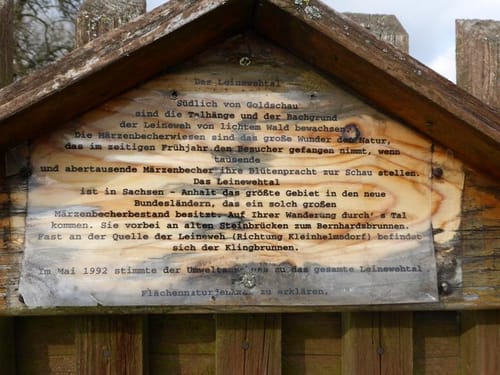 Das Leinewehtal
Südlich von Goldschau
sind die Talhänge und der Bachgrund
der Leineweh von lichtem Wald bewachsen.
Die Märzenbecherwiesen sind das große Wunder der Natur,
das im zeitigen Frühjahr den Besucher gefangen nimmt, wenn
tausende
und abertausende Märzenbecher ihre Blütenpracht zur Schau stellen.
Das Leinewehtal
ist in Sachsen - Anhalt das größte Gebiet in den neue
Bundesländern, das ein solch großen
Märzenbecherbestand besitzt. Auf Ihrer Wanderung durch's Tal
kommen. Sie vorbei an alten Steinbrücken zum Bernhardsbrunnen.
Fast an der Quelle der Leineweh (Richtung Kleinhelmsdorf) befindet
sich der Klingbrunnen.
Im Mai 1992 stimmte der zu das gesamte Leinewehtal
zu erklären.